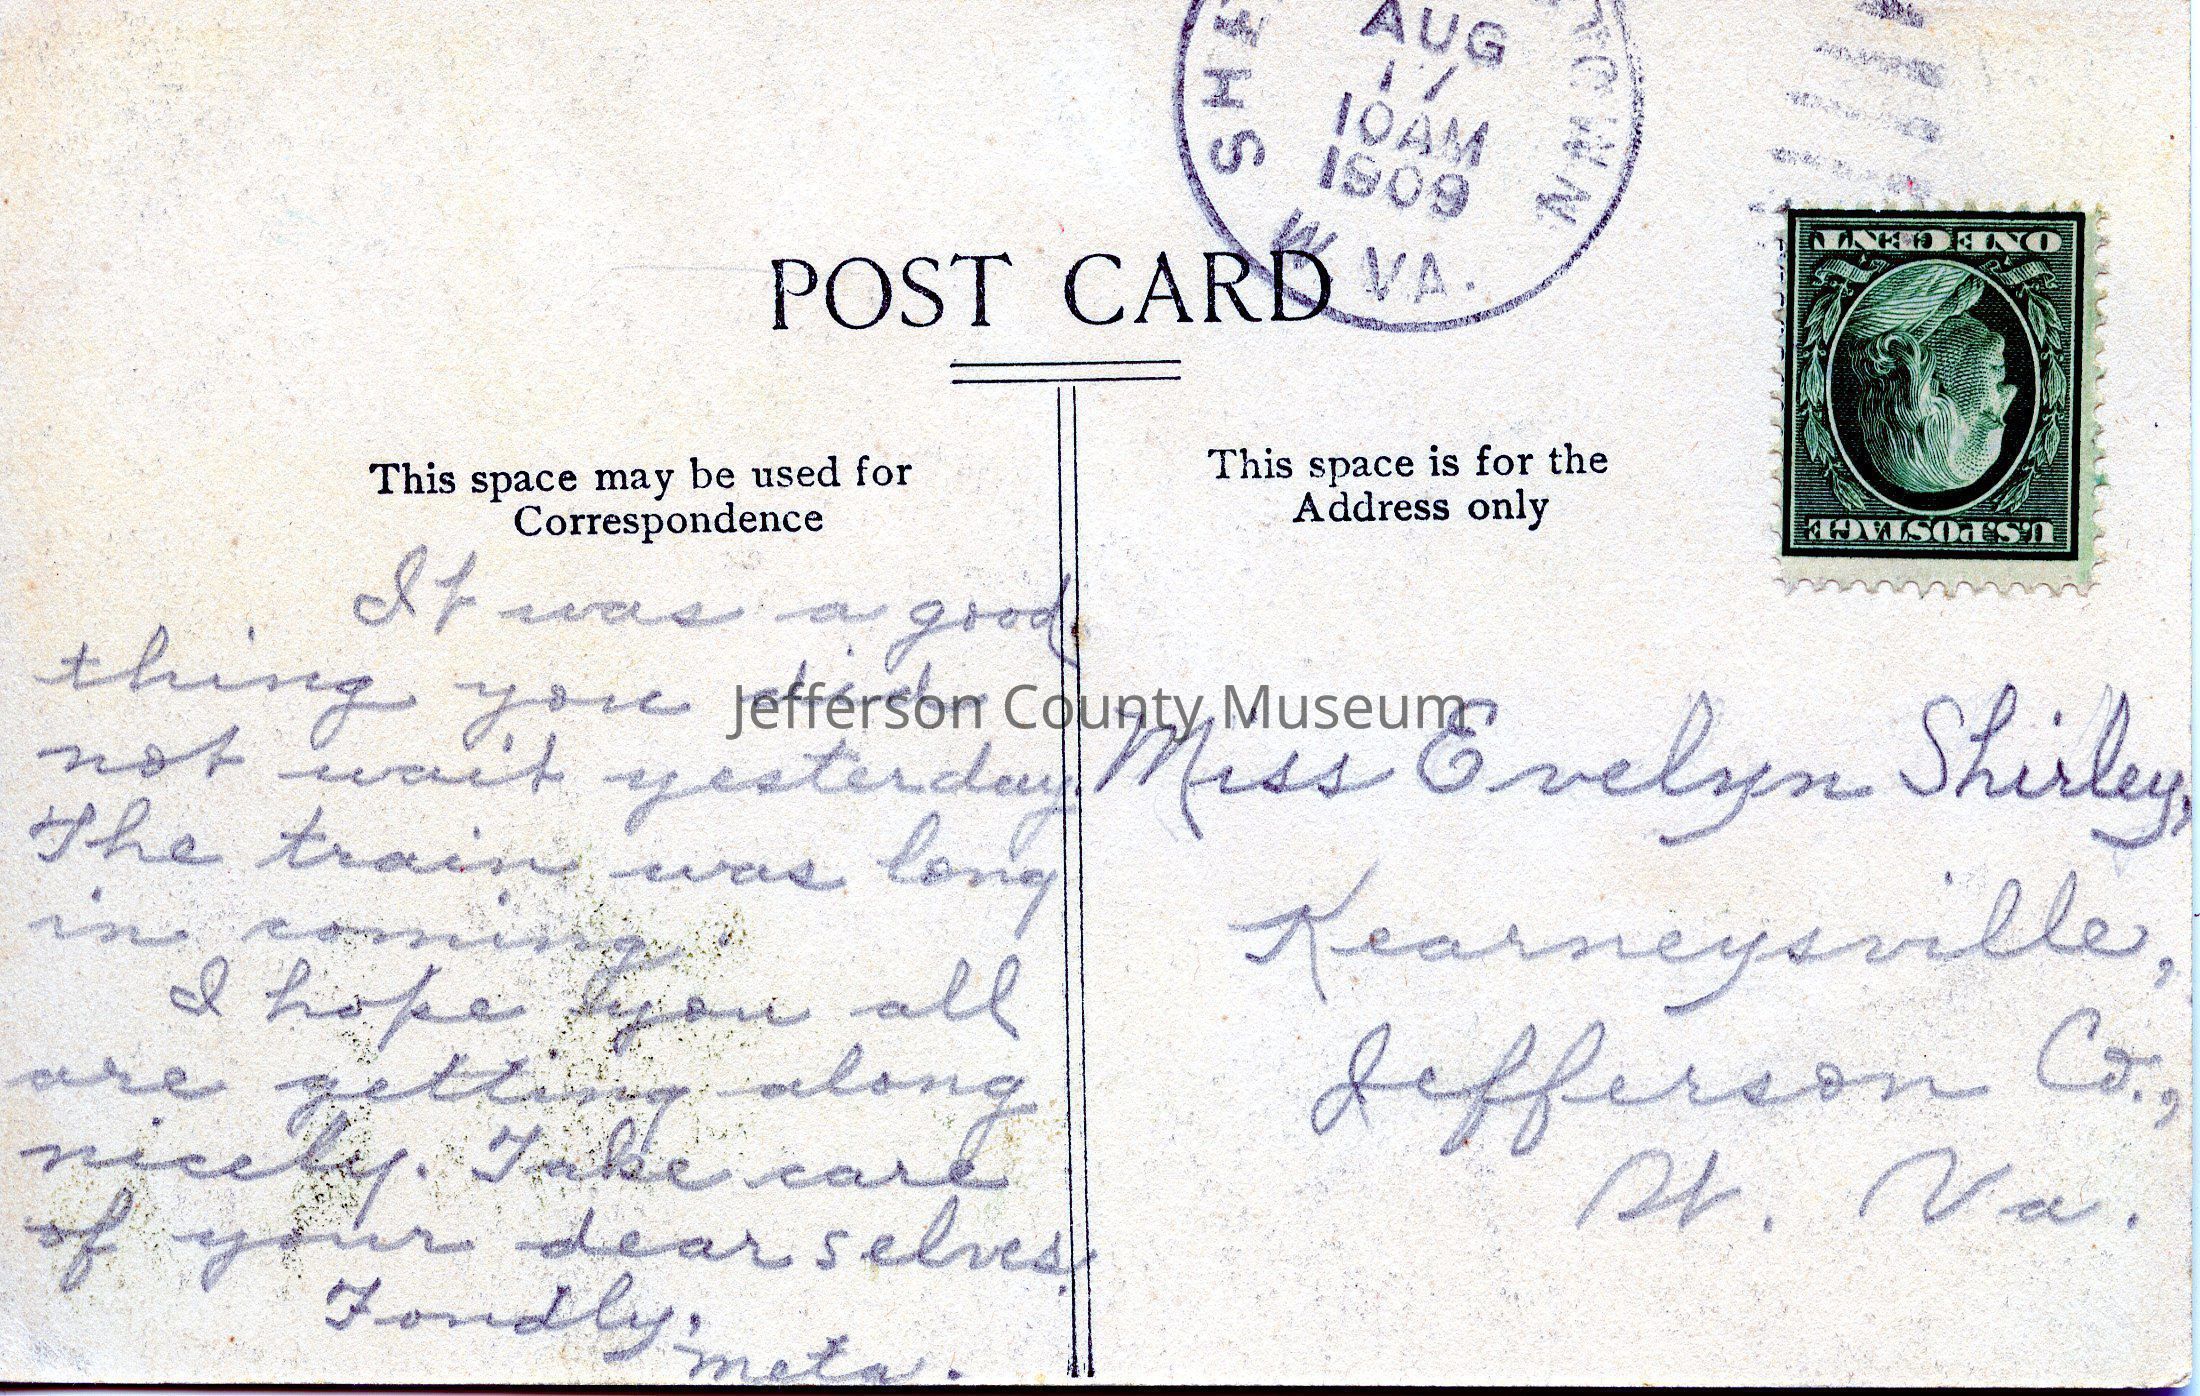 AUG
17
10AM
1909
W. VA.
POST CARD
ONE CENT
U.S. POSTAGE
This space may be used for
Correspondence
This space is for the
Address only
It was a good
thing you did
not wait yesterday.
The train was long
in coming.
I hope you all
are getting along
nicely. Take care
of your dear selves.
Fondly,
Meta.
Miss Evelyn Shirley,
Kearneysville,
Jefferson Co.,
W. Va.
Jefferson County Museum